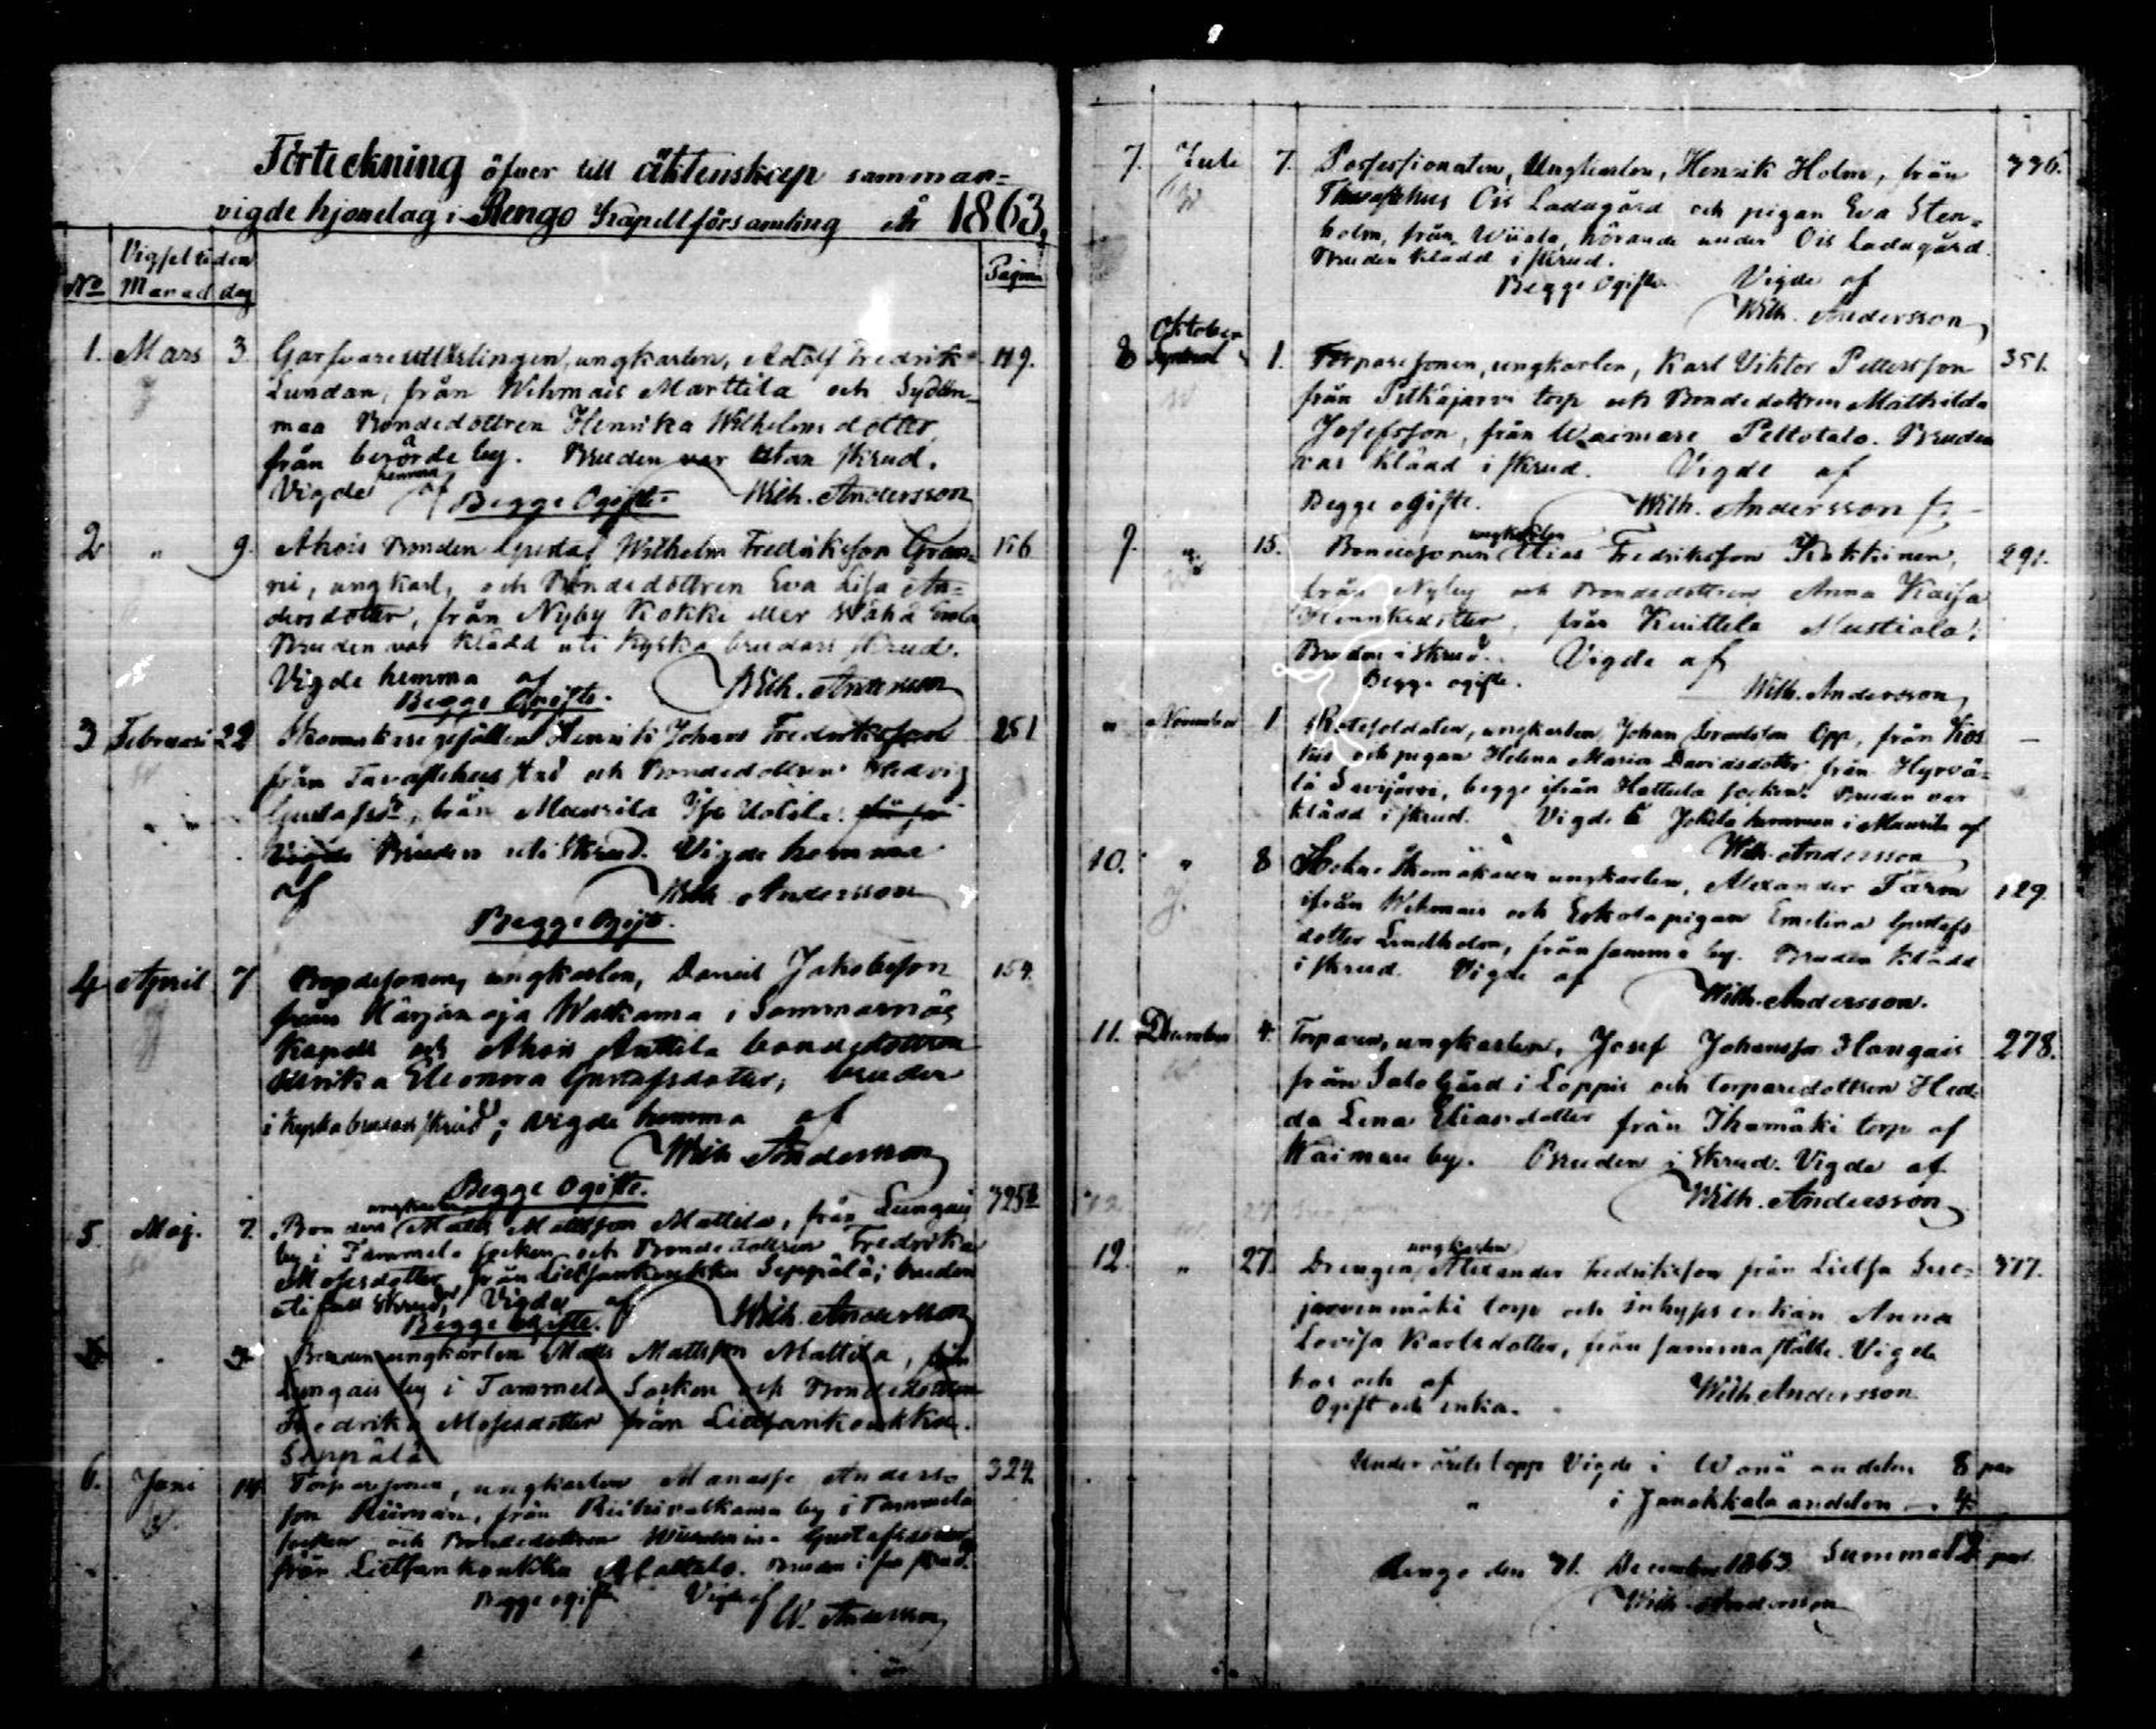 Förteckning öfver till äktenskap samman-
vigde hjonelag i Rengo Kapellförsamling år 1863.
No Vigseltiden
Månad dag
Pagina
1. Mars 3 Garfvare ungkarlen, Adolf Fredrik 119.
Lundan, från Wehmais Marttila och Sydän-
maa Bondedottren Henrika Wilhelmsdotter,
från berörde by. Bruden var utan skrud.
Vigde hemma af Wilh. Andersson
Begge Ogifte
2 " 9. Ahois Bonden Gustaf Wilhelm Fredriksson Gran- 116
ni, ungkarl, och Bondedottren Eva Lisa An-
dersdotter, från Nyby Kokki eller Wähä
Bruden var klädd uti kyska brudars skrud.
Vigde hemma af Wilh. Andersson
Begge Ogifte.
3 Februari 22 Skomakaregesällen Henrik Johan Fredriksson 251
från Tavastehus stad och Bondedottren Hedvig
från Maunila Iso Uotila.
Vigde Bruden uti Skrud. Vigde hemma
af Wilh. Andersson
Begge Ogift.
4 April 7 Bondesonen, ungkarlen, Daniel Jakobsson 154.
från Härjänoja Walkama i Sommarnäs
Kapell och Ahois Anttila bondedottren
Ulrika Eleonora Gustafsdotter, bruden
i kyska brudars skrud; vigde hemma af
Wilh. Andersson
Begge Ogifte.
5. Maj. 7. Bonden ungkarlen Matts Mattsson Mattila, från Lungais 325
by i Tammela socken och Bondedottren Fredrika
Mosesdotter, från Lietsankoukku Seppälä; bruden
uti full skrud, Vigde af Wilh. Andersson
Begge Ogifte.
Bonden ungkarlen Matts Mattsson Mattila, från
Lungais by i Tammela Socken och Bondedottren
Fredrika Mosesdotter från Lietsankoukku
Seppälä
6. Juni 14 Torparesonen, ungkarlen Manasse Anders- 324.
son från Riihivalkama by i Tammela
socken och Bondedottren Gustafsdotter
från Lietsankoukku Alattalo. Bruden i skrud.
Begge ogifte Vigde af W. Andersson
7. Juli 7. Possessionaten, Ungkarlen, Henrik Holm, från 336.
Tavastehus Ois Ladugård och pigan Eva Sten-
holm, från Wiiala, hörande under Ois Ladugård.
Bruden klädd i skrud.
Begge Ogifte. Vigde af
Wilh. Andersson
Oktober
8 1. Torparesonen, ungkarlen, Karl Viktor Pettersson 351.
från Pitkäjärvi torp och Bondedottren Mathilda
Josefsson, från Waimare Peltotalo. Bruden
var klädd i skrud. Vigde af
Begge ogifte. Wilh. Andersson
9. " 15. Bondesonen ungkarlen Elias Fredriksson Kokkinen, 291.
från Nyby och Bondedottren Anna Kaisa
Henriksdotter, från Kuittila Mustiala;
Bruden i skrud. Vigde af
Begge ogifte. Wilh. Andersson
" November 1 Rotesoldaten, ungkarlen, Johan Opp, från Kos- —
kis och pigan Helena Maria Davidsdotter från Hyrvä-
lä Savijärvi, begge ifrån Hattula socken. Bruden var
klädd i skrud. Vigde å Jokela hemman i Maunila af
Wilh. Andersson
10. " 8 Skomakaren ungkarlen, Alexander Färm 129.
ifrån Wehmais och Eskola pigan Emelina Gustafs
dotter Lindholm, från samma by. Bruden klädd
i skrud. Vigde af
Wilh. Andersson.
11. December 4. Torparen, ungkarlen, Josef Johansson Hongais 278.
från Salo Gård i Loppis och torparedottren Hed-
da Lena Eliasdotter från Ihamäki torp af
Waimare by. Bruden i skrud. Vigde af
Wilh. Andersson
12. " 27. Drengen, ungkarlen Alexander Fredriksson från Lietsa Suo- 377.
jarvenmäki torp och inhyses enkan Anna
Lovisa Karlsdotter, från samma ställe. Vigde
hos och af Wilh. Andersson
Ogift och enka.
Under årets lopp Vigde i Wånå andelen 8 par
" i Janakkala andelen — 4
Summa 12 par.
Rengo den 31. December 1863
Wilh. Andersson